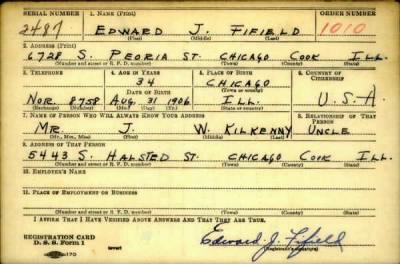 SERIAL NUMBER 1. NAME (Print) ORDER NUMBER
2487 EDWARD J. FIFIELD 1010
(First) (Middle) (Last)
2. ADDRESS (Print)
6728 S. PEORIA ST. CHICAGO COOK ILL.
(Number and street or R. F. D. number) (Town) (County) (State)
3. TELEPHONE 4. AGE IN YEARS 5. PLACE OF BIRTH 6. COUNTRY OF CITIZENSHIP
34 CHICAGO
DATE OF BIRTH (Town or county)
NOR. 8758 AUG. 31 1906 ILL. U.S.A.
(Exchange) (Number) (Mo.) (Day) (Yr.) (State or country)
7. NAME OF PERSON WHO WILL ALWAYS KNOW YOUR ADDRESS 8. RELATIONSHIP OF THAT PERSON
MR. J. W. KILKENNY, UNCLE
(Mr., Mrs., Miss) (First) (Middle) (Last)
9. ADDRESS OF THAT PERSON
5443 S. HALSTED ST. CHICAGO COOK ILL.
(Number and street or R. F. D. number) (Town) (County) (State)
10. EMPLOYER'S NAME
11. PLACE OF EMPLOYMENT OR BUSINESS
(Number and street or R. F. D. number) (Town) (County) (State)
I AFFIRM THAT I HAVE VERIFIED ABOVE ANSWERS AND THAT THEY ARE TRUE.
REGISTRATION CARD
D. S. S. Form 1 (over) Edward J. Fifield
(Registrant's signature)